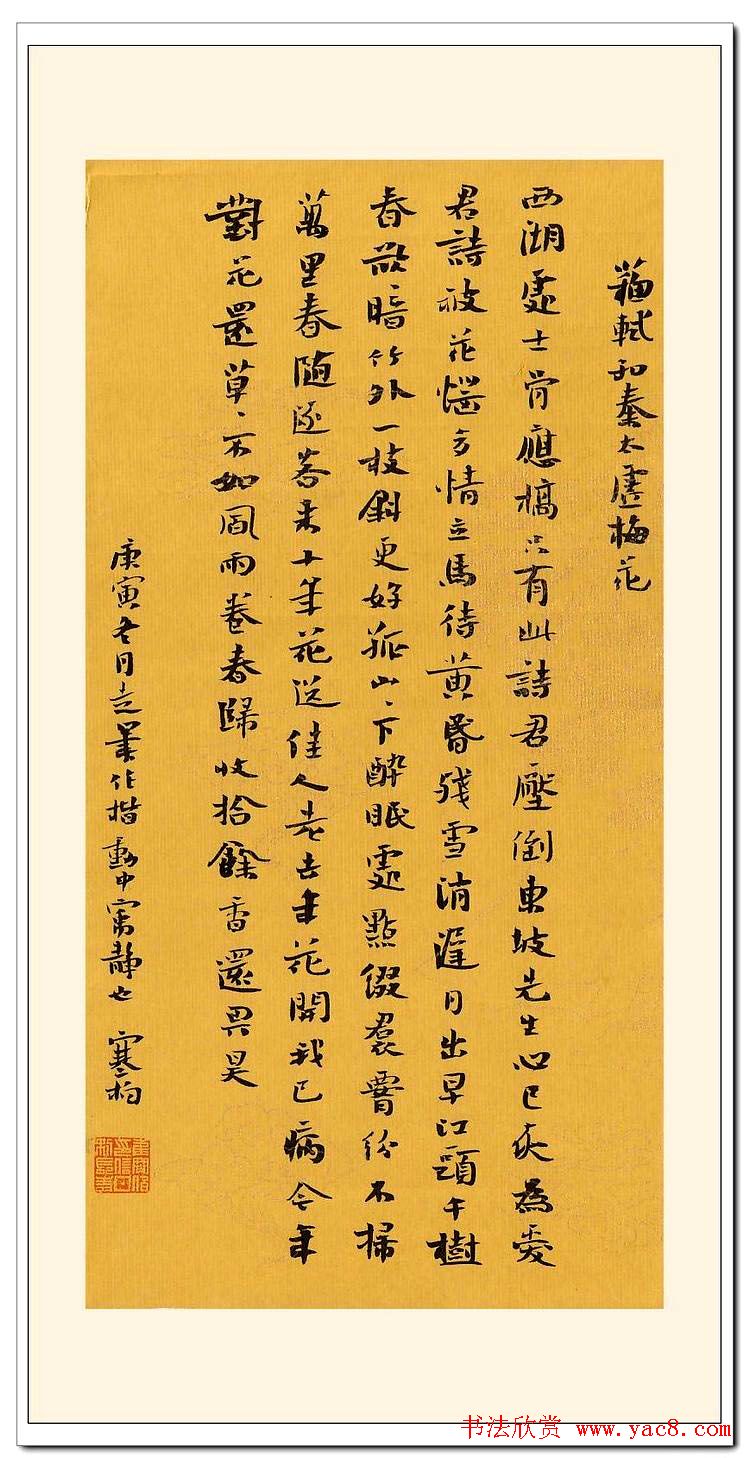 蘇軾和秦太虛梅花
西湖處士骨應槁只有此詩君壓倒東坡先生心已灰為愛
君詩被花惱多情立馬待黃昏殘雪消遲月出早江頭千樹
春欲暗竹外一枝斜更好孤山々下醉眠處點綴裠腰紛不掃
萬里春隨逐客來十年花送佳人老去年花開我已病今年
對花還草々不如風雨卷春歸收拾餘香還畀昊
庚寅冬月走筆作楷動中寓靜也 寒柏
书法欣赏 www.yac8.com